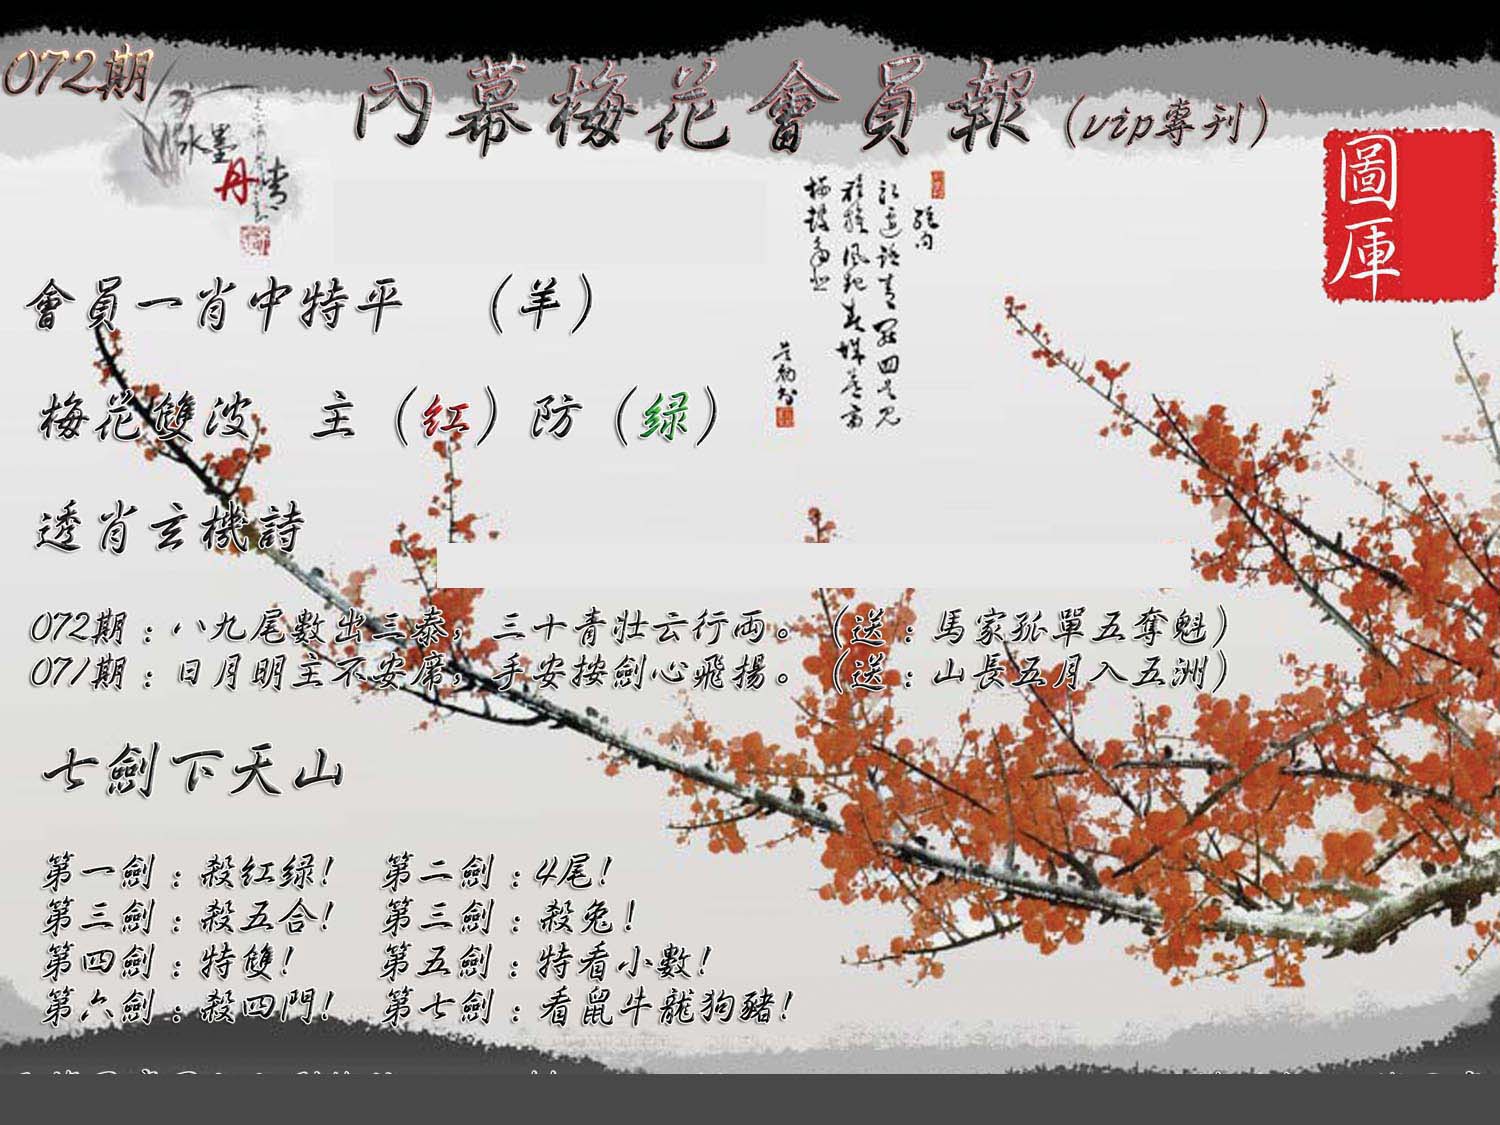 072期
內幕梅花會員報(vip專刊)
水墨
丹青
圖庫
會員一肖中特平 (羊)
梅花雙波 主(红)防(绿)
透肖玄機詩
072期:八九尾數出三泰,三十青壯云行両。(送:馬家孤單五奪魁)
071期:日月明主不安席,手安按劍心飛揚。(送:山長五月入五洲)
七劍下天山
第一劍:殺红绿! 第二劍:4尾!
第三劍:殺五合! 第三劍:殺兔!
第四劍:特雙! 第五劍:特看小數!
第六劍:殺四門! 第七劍:看鼠牛龍狗豬!